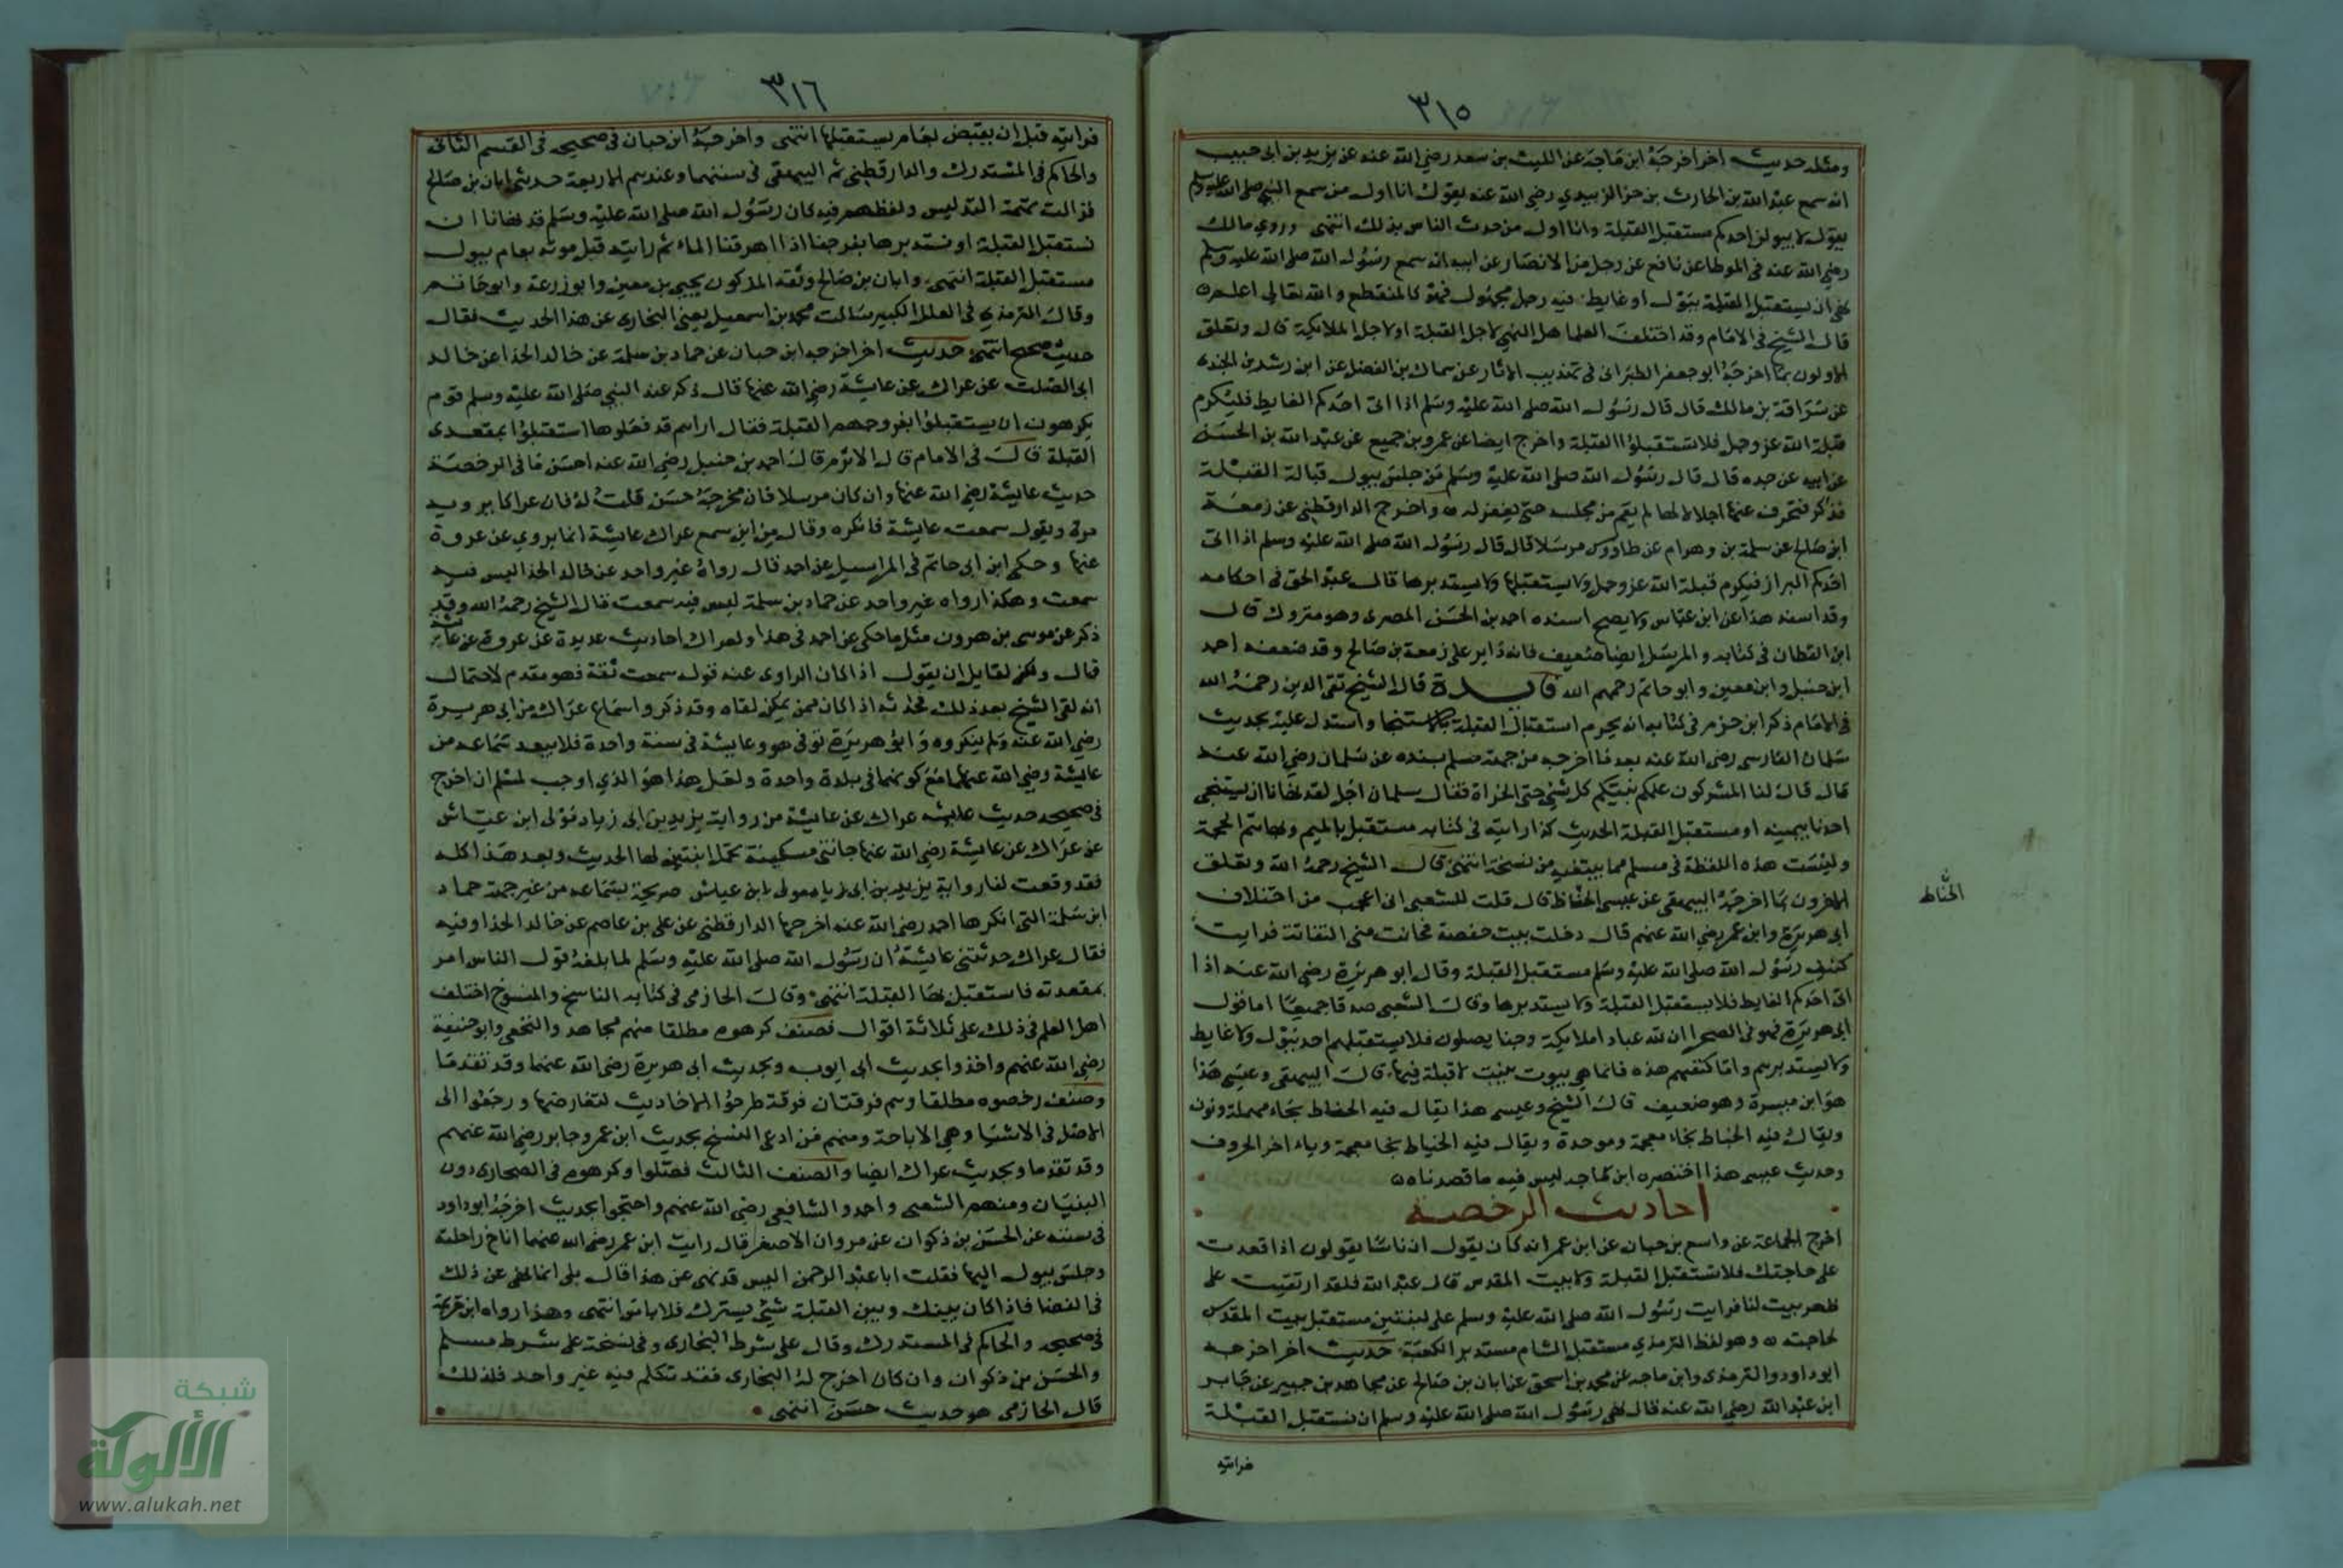 ٣١٥
ومثله حديث اخر اخرجه ابن ماجه عن الليث بن سعد رضي الله عنه عن يزيد بن ابي حبيب
انه سمع عبد الله بن الحارث بن حزالزبيدي رضي الله عنه يقول انا اول من سمع النبي صلى الله عليه وسلم
يقول لا يبولن احدكم مستقبل القبلة وانا اول من حدث الناس بذلك انتهى وروي مالك
رضي الله عنه في الموطا عن نافع عن رجل من الانصار عن ابيه انه سمع رسول الله صلى الله عليه وسلم
نهى ان يستقبل القبلة ببول او غايط فيه رجل مجهول فهو كالمنقطع والله تعالى اعلم
قال الشيخ في الامام وقد اختلف العلما هل النهي لاجل القبلة او لاجل الملايكة قال وتعلق
الاولون بما اخرجه ابو جعفر الطبراني في تهذيب الاثار عن سماك بن الفضل عن ابن رشد بن الجندي
عن سراقة بن مالك قال قال رسول الله صلى الله عليه وسلم اذا اتى احدكم الغايط فليكرم
قبلة الله عز وجل فلا تستقبلوا القبلة واخرج ايضا عن عمرو بن جميع عن عبد الله بن الحسن
عن ابيه عن جده قال قال رسول الله صلى الله عليه وسلم من جلس يبول قبالة القبلة
فذكر فتحرف عنها اجلالا لها لم يقم من مجلسه حتى يغفر له واخرج الدارقطني عن زمعة
ابن صالح عن سلمة بن وهرام عن طاووس مرسلا قال قال رسول الله صلى الله عليه وسلم اذا اتى
احدكم البراز فيكرم قبلة الله عز وجل ولا يستقبلها ولا يستدبرها قال عبد الحق في احكامه
وقد اسند هذا عن ابن عباس ولا يصح اسنده احمد بن الحسن المصري وهو متروك قال
ابن القطان في كتابه والمرسل ايضا ضعيف فانه داير على زمعة بن صالح وقد ضعفه احمد
ابن حنبل وابن معين وابو حاتم رحمهم الله فايدة قال الشيخ تقي الدين رحمه الله
في الامام ذكر ابن حزم في كتابه انه يحرم استقبال القبلة بالاستنجا واستدل عليه بحديث
سلمان الفارسي رضي الله عنه بعد ما اخرجه من جهة مسلم بسنده عن سلمان رضي الله عنه
قال قال لنا المشركون علمكم نبيكم كل شي حتى الخراة فقال سلمان اجل لقد نهانا ان يستنجى
احدنا بيمينه او مستقبل القبلة الحديث كذا رايته في كتابه مستقبل بالميم ولها تتم الحجة
وليست هذه اللفظة في مسلم مما يبتغيه من نسخة انتهى قال الشيخ رحمه الله وتعلق
الاخرون بما اخرجه البيهقي عن عيسى الحناط قال قلت للشعبي اني اعجب من اختلاف
ابي هريرة وابن عمر رضي الله عنهم قال دخلت بيت حفصة فحانت مني التفاتة فرايت
كنيف رسول الله صلى الله عليه وسلم مستقبل القبلة وقال ابو هريرة رضي الله عنه اذا
اتى احدكم الغايط فلا يستقبل القبلة ولا يستدبرها وقال الشعبي صدقا جميعا اما قول
ابي هريرة فهو في الصحرا ان لله عبادا ملايكة وجنا يصلون فلا يستقبلهم احد ببول ولا غايط
ولا يستدبرهم واما كنفهم هذه فانما هي بيوت بنيت لا قبلة فيها قال البيهقي وعيسى هذا
هو ابن ميسرة وهو ضعيف قال الشيخ وعيسى هذا يقال فيه الحناط بحاء مهملة ونون
ويقال فيه الخباط بخاء معجمة وموحدة ويقال فيه الخياط بخا معجمة وياء اخر الحروف
وحديث عيسى هذا اختصره ابن ماجه ليس فيه ما قصدناه
احاديث الرخصة
اخرج الجماعة عن واسع بن حبان عن ابن عمر انه كان يقول ان ناسا يقولون اذا قعدت
على حاجتك فلا تستقبل القبلة ولا بيت المقدس قال عبد الله فلقد ارتقيت على
ظهر بيت لنا فرايت رسول الله صلى الله عليه وسلم على لبنتين مستقبل بيت المقدس
لحاجته وهو لفظ الترمذي مستقبل الشام مستدبر الكعبة حديث اخر اخرجه
ابو داود والترمذي وابن ماجه عن محمد بن اسحق عن ابان بن صالح عن مجاهد بن جبير عن جابر
ابن عبد الله رضي الله عنه قال نهى رسول الله صلى الله عليه وسلم ان نستقبل القبلة
فرايته
الحناط
٣١٦
فرايته قبل ان يقبض بعام يستقبلها انتهى واخرجه ابن حبان في صحيحه في القسم الثاني
والحاكم في المستدرك والدارقطني ثم البيهقي في سننهما وعندهم الاربعة حدثني ابان بن صالح
فزالت تهمة التدليس ولفظهم فيه كان رسول الله صلى الله عليه وسلم قد نهانا ان
نستقبل القبلة او نستدبرها بفروجنا اذا اهرقنا الماء ثم رايته قبل موته بعام يبول
مستقبل القبلة انتهى وابان بن صالح وثقه المذكون يحيى بن معين وابو زرعة وابو حاتم
وقال الترمذي في العلل الكبير سالت محمد بن اسمعيل يعني البخاري عن هذا الحديث فقال
حديث صحيح انتهى حديث اخر اخرجه ابن حبان عن حماد بن سلمة عن خالد الحذا عن خالد
ابي الصلت عن عراك عن عايشة رضي الله عنها قال ذكر عند النبي صلى الله عليه وسلم قوم
يكرهون ان يستقبلوا بفروجهم القبلة فقال اراهم قد فعلوها استقبلوا بمقعدي
القبلة قال في الامام قال الاثرم قال احمد بن حنبل رضي الله عنه احسن ما في الرخصة
حديث عايشة رضي الله عنها وان كان مرسلا فان مخرجه حسن قلت له فان عراكا يرويه
مرة ويقول سمعت عايشة فانكره وقال من اين سمع عراك عايشة انما يروي عن عروة
عنها وحكى ابن ابي حاتم في المراسيل عن احمد قال رواه غير واحد عن خالد الحذا ليس فيه
سمعت وهكذا رواه غير واحد عن حماد بن سلمة ليس فيه سمعت قال الشيخ رحمه الله وقد
ذكر عن موسى بن هرون مثل ما حكى عن احمد في هذا ولعراك احاديث عديدة عن عروة عن عايشة
قال ولكن لقايل ان يقول اذا كان الراوي عنه قوله سمعت ثقة فهو مقدم لاحتمال
انه لقي الشيخ بعد ذلك فحدثه اذا كان ممن يمكن لقاه وقد ذكروا سماع عراك من ابي هريرة
رضي الله عنه ولم ينكروه وابو هريرة توفي هو وعايشة في سنة واحدة فلا يبعد سماعه من
عايشة رضي الله عنهما مع كونهما في بلدة واحدة ولعل هذا هو الذي اوجب لمسلم ان اخرج
في صحيحه حديث عايشة عراك عن عايشة من رواية يزيد بن ابي زياد مولى ابن عياش
عن عراك عن عايشة رضي الله عنها جاتني مسكينة تحمل ابنتين لها الحديث وبعد هذا كله
فقد وقعت لنا رواية يزيد بن ابي زياد مولى ابن عياش صريحة بسماعه من غير جهة حماد
ابن سلمة التي انكرها احمد رضي الله عنه اخرجها الدارقطني عن علي بن عاصم عن خالد الحذا وفيه
فقال عراك حدثتني عايشة ان رسول الله صلى الله عليه وسلم لما بلغه قول الناس امر
بمقعدته فاستقبل بها القبلة انتهى وقال الحازمي في كتابه الناسخ والمنسوخ اختلف
اهل العلم في ذلك على ثلاثة اقوال فصنف كرهوه مطلقا منهم مجاهد والنخعي وابو حنيفة
رضي الله عنهم واخذوا بحديث ابي ايوب وبحديث ابي هريرة رضي الله عنهما وقد تقدما
وصنف رخصوه مطلقا وهم فرقتان فرقة طرحوا الاحاديث لتعارضها ورجعوا الى
الاصل في الاشيا وهي الاباحة ومنهم من ادعى النسخ بحديث ابن عمر وجابر رضي الله عنهم
وقد تقدما وبحديث عراك ايضا والصنف الثالث فصلوا وكرهوه في الصحارى دون
البنيان ومنهم الشعبي واحمد والشافعي رضي الله عنهم واحتجوا بحديث اخرجه ابو داود
في سننه عن الحسن بن ذكوان عن مروان الاصغر قال رايت ابن عمر رضي الله عنهما اناخ راحلته
وجلس يبول اليها فقلت ابا عبد الرحمن اليس قد نهى عن هذا قال بلى انما نهى عن ذلك
في الفضا فاذا كان بينك وبين القبلة شي يسترك فلا باس انتهى وهذا رواه ابن خزيمة
في صحيحه والحاكم في المستدرك وقال على شرط البخاري وفي نسخة على شرط مسلم
والحسن بن ذكوان وان كان اخرج له البخاري فقد تكلم فيه غير واحد فلذلك
قال الحازمي هو حديث حسن انتهى
شبكة
الألوكة
www.alukah.net